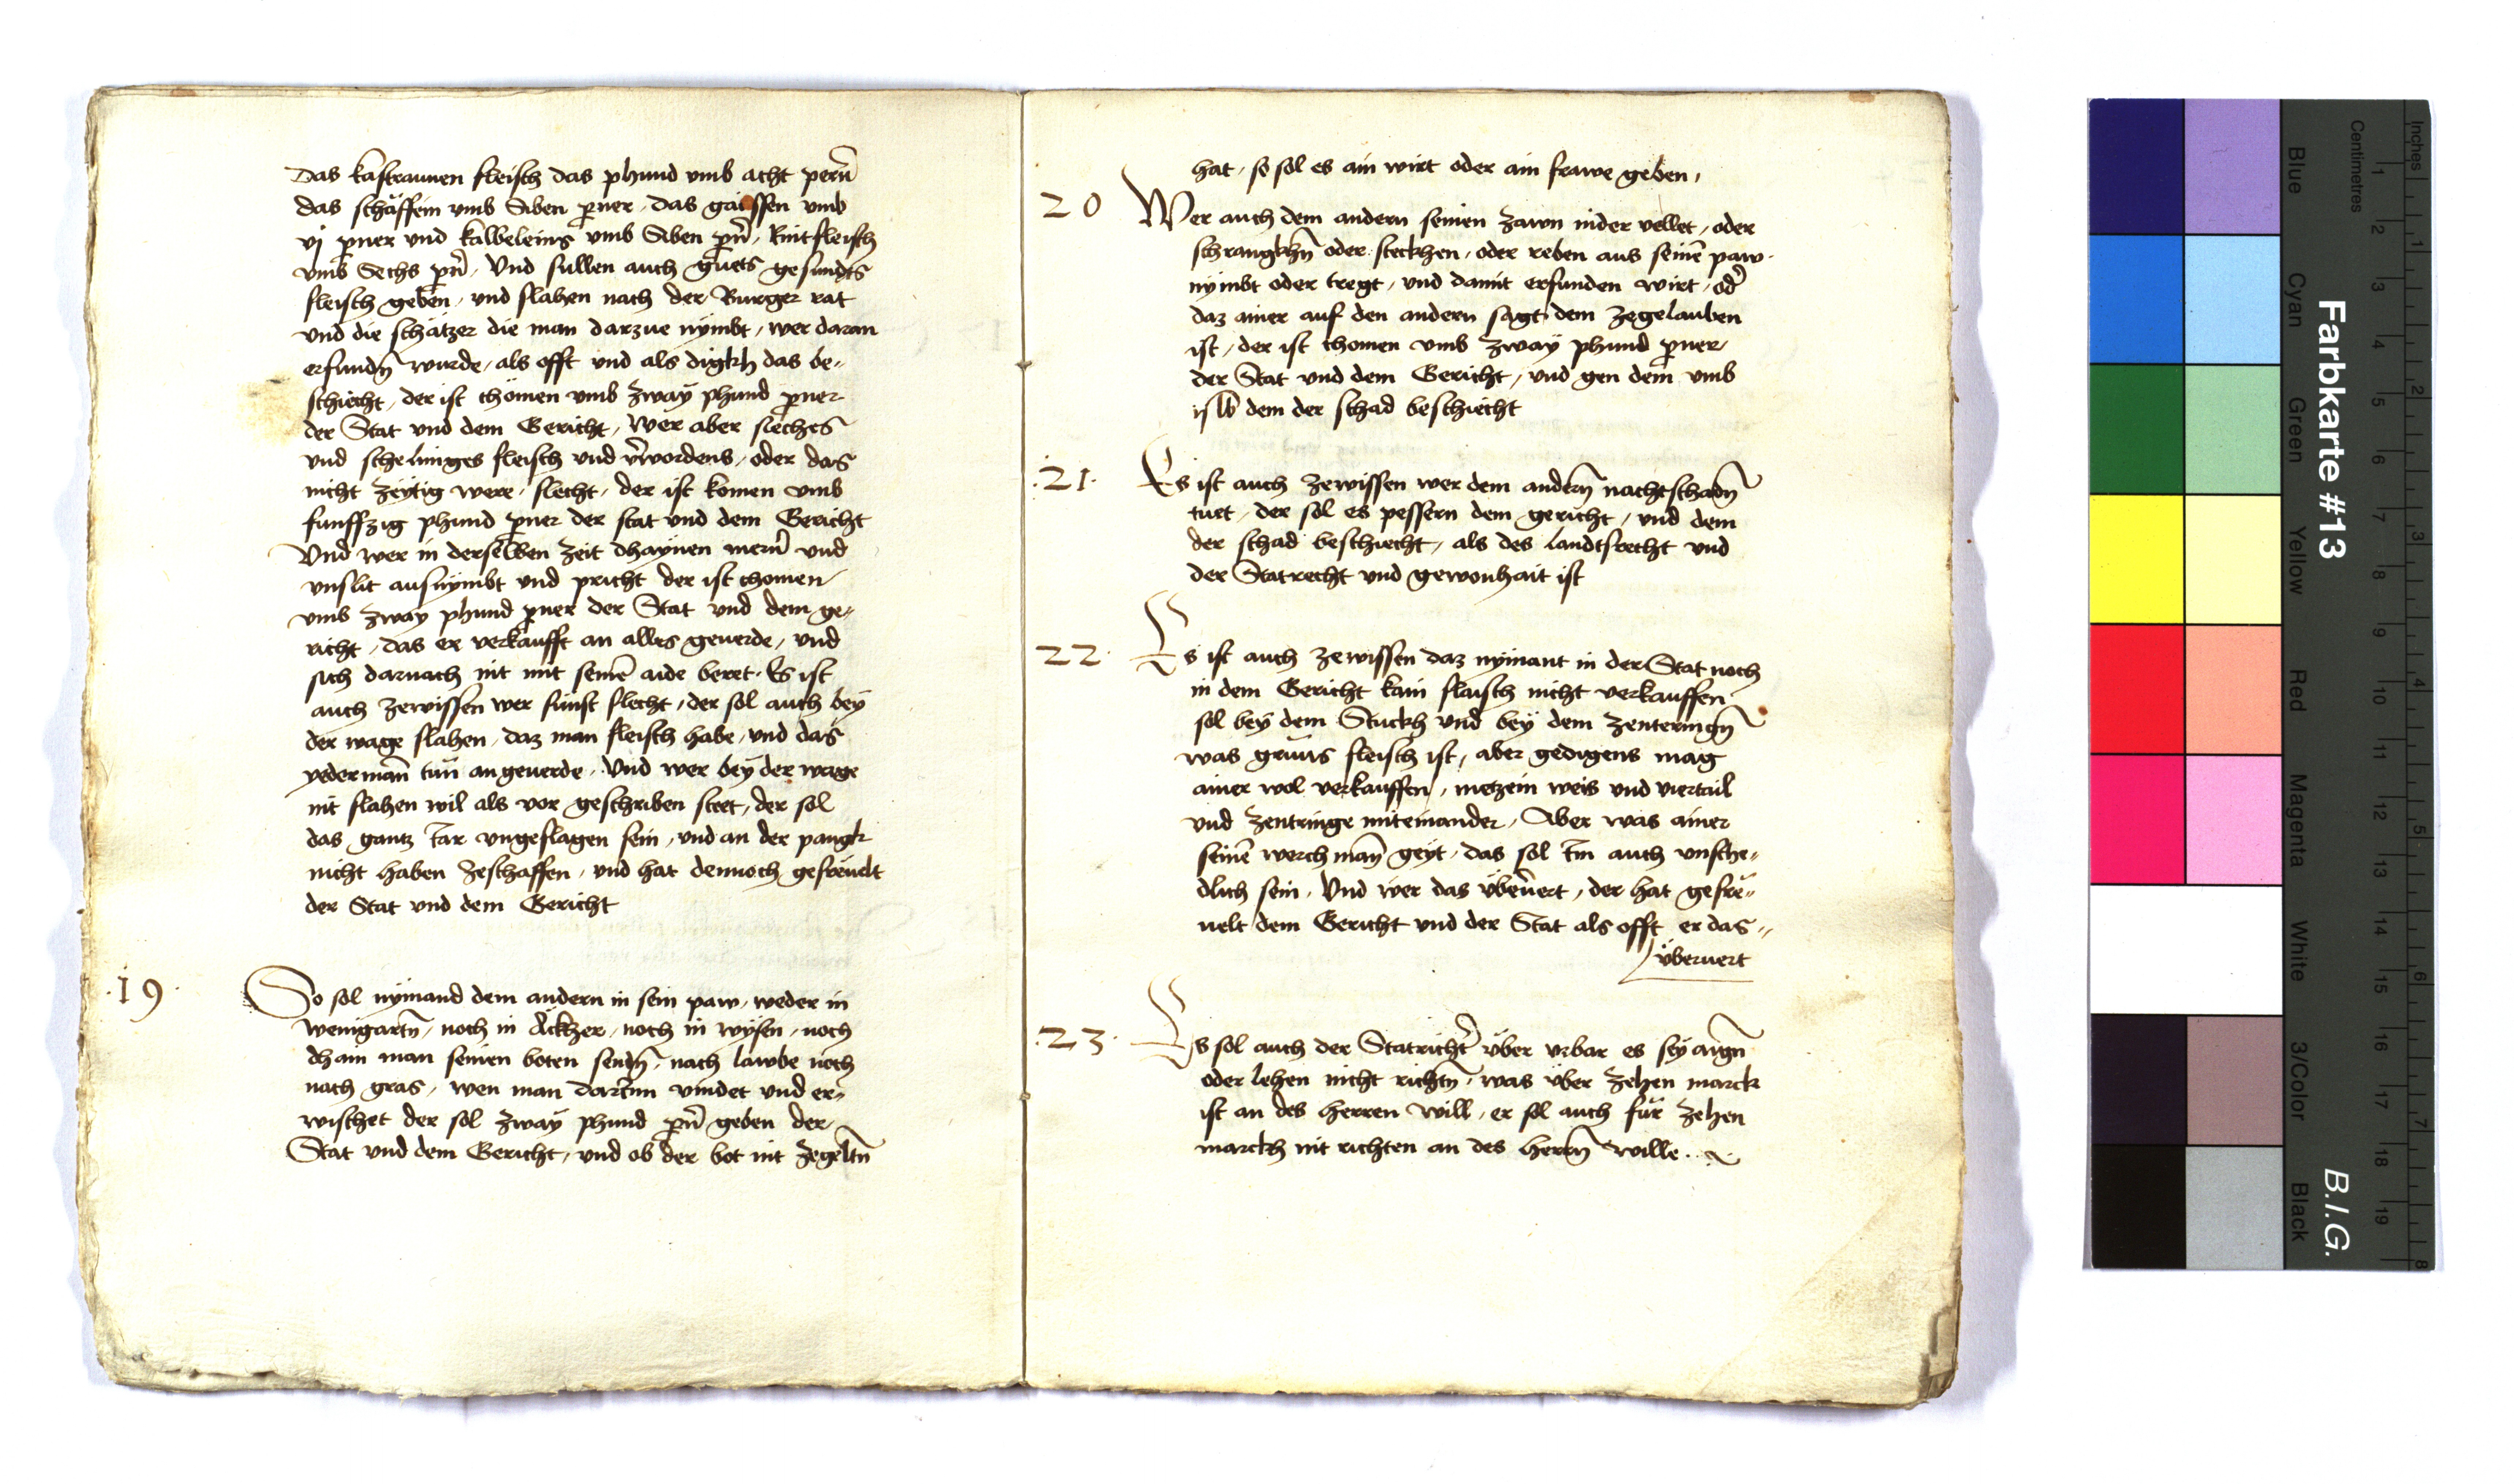 Das kastraunen fleisch das phund vmb acht pern̄
das schäffein vmb Siben p̄ner, das gaissen vmb
vj p̄ner vnd kalbeleins vmb Siben pn̄, Rintfleisch
vmb Sechs pn̄, Vnd sullen auch guets gesundts
fleisch geben, vnd slahen nach der Burger rat
vnd die schätzer die man darzue nÿmbt, wer daran
erfundn̄ wurde, als offt vnd als digkh das be„
schiecht, der ist chömen vmb zwaÿ phund p̄ner
der Stat vnd dem Gericht, Wer aber siechs
vnd schelmiges fleisch vnd v̄wordens, oder das
nicht zeÿtig were, slecht, der ist komen vmb
funffzig phund p̄ner der stat vnd dem Gericht
Vnd wer in derselben zeit dhaÿnen niern̄ vnd
vnslit ausnÿmbt vnd pricht der ist chomen
vmb zwaÿ phund p̄ner der Stat vnd dem ge„
richt, das er verkaufft an alles geuerde, vnd
sich darnach nit mit seinē aide beret. Es ist
auch zewissen wer sunst slecht, der sol auch beÿ
der wage slahen, daz man fleisch habe, vnd das
yederman̄ tun an geuerde, Vnd wer beÿ der wage
nit slahen wil als vor geschriben steet, der sol
das gantz Jar vngeslagen sein, vnd an der pangk
nicht haben zeschaffen, vnd hat dennoch gefreuelt
der Stat vnd dem Gericht
.19.
So sol nÿmand dem andern in sein paw, weder in
weingartn̄, noch in Äckher, noch in wÿsen, noch
dhain man seinen boten sendn̄, nach lawbe noch
nach gras, wen man darInn vindet vnd er„
wischet der sol zwaÿ phund pn̄ geben der
Stat vnd dem Gericht, vnd ob der bot nit zegeltn̄
hat, so sol es ain wirt oder ain frawe geben,
20
Wer auch dem andern seinen zawn nider vellet, oder
schrangkhn̄ oder steckhen, oder reben aus seinē paw
nÿmbt oder tregt, vnd damit erfunden wirt, od̄
daz ainer auf den andern sagt dem zegelauben
ist, der ist chomen vmb zwaÿ phund p̄ner,
der Stat vnd dem Gericht, vnd gen dem vmb
dem der schad beschiecht
.21.
Es ist auch zewissen wer dem andern̄ nachtschadn̄
tuet, der sol es pessern dem gericht, vnd dem
der schad beschiecht, als des landtsrecht vnd
der Statrecht vnd gewonhait ist
22.
Es ist auch zewissen daz nÿmant in der Stat noch
in dem Gericht kain flaisch nicht verkauffen
sol beÿ dem Stuckh vnd beÿ dem zenteringn̄
was gruns fleisch ist, aber gedigens mag
ainer wol verkauffen, metzein weis vnd viertail
vnd zentringe miteinander, Aber was ainer
seinē werchman̄ geÿt, das sol Im auch vnsche„
dlich sein, Vnd wer das vberuert, der hat gefre„
uelt dem Gericht vnd der Stat als offt er das„
vberuert
.23.
Es sol auch der Statricht̄ vber vrbar es seÿ aign̄
oder lehen nicht richtn̄, was vber zehen marck
ist an des herren will, er sol auch für zehen
marckh nit richten an des herrn̄ wille.
Farbkarte #13
B.I.G.
Blue
Cyan
Green
Yellow
Red
Magenta
White
3/Color
Black
Centimetres
Inches
1 2 3 4 5 6 7 8 9 10 11 12 13 14 15 16 17 18 19
1 2 3 4 5 6 7 8